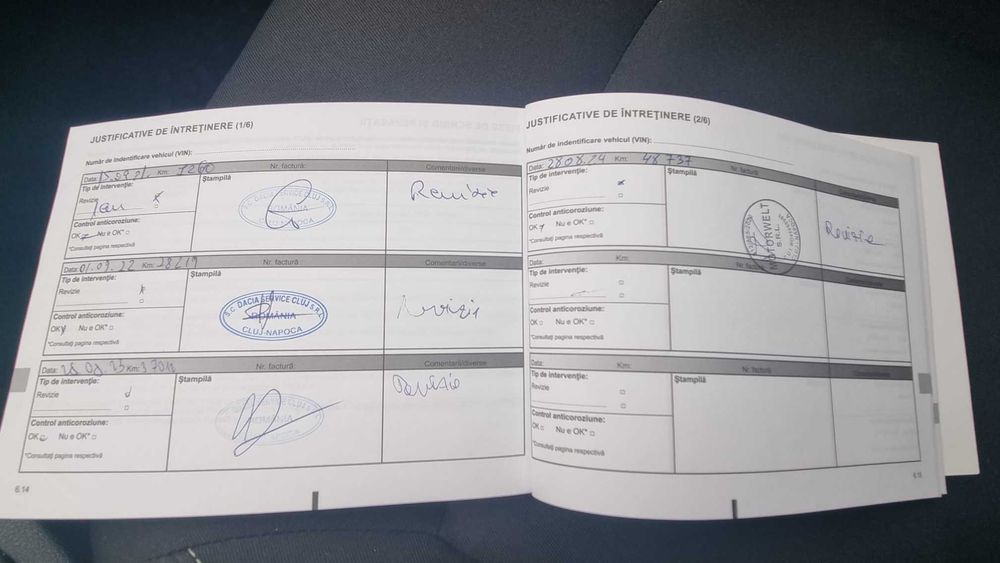 JUSTIFICATIVE DE ÎNTREŢINERE (1/6)
Număr de indentificare vehicul (VIN):
Data: 15.09.21. Km: 7260 Nr. factură: Comentarii/diverse
Tip de intervenţie: Ştampilă
Revizie
S.C. DACIA SERVICE CLUJ S.R.L.
ROMÂNIA
CLUJ-NAPOCA
Revizie
Control anticoroziune:
OK Nu e OK*
*Consultaţi pagina respectivă
Data: 01.09.22 Km: Nr. factură: Comentarii/diverse
Tip de intervenţie: Ştampilă
Revizie
S.C. DACIA SERVICE CLUJ S.R.L.
ROMÂNIA
CLUJ-NAPOCA
Revizie
Control anticoroziune:
OK Nu e OK*
*Consultaţi pagina respectivă
Data: Km: Nr. factură: Comentarii/diverse
Tip de intervenţie: Ştampilă
Revizie
ROMÂNIA
Revizie
Control anticoroziune:
OK Nu e OK*
*Consultaţi pagina respectivă
6.14
JUSTIFICATIVE DE ÎNTREŢINERE (2/6)
Număr de indentificare vehicul (VIN):
Data: 28.08.24 Km: 48 737 Nr. factură: Comentarii/diverse
Tip de intervenţie: Ştampilă
Revizie
MOTORWELT
S.R.L.
Revizie
Control anticoroziune:
OK Nu e OK*
*Consultaţi pagina respectivă
Data: Km: Nr. factură: Comentarii/diverse
Tip de intervenţie: Ştampilă
Revizie
Control anticoroziune:
OK Nu e OK*
*Consultaţi pagina respectivă
Data: Km: Nr. factură: Comentarii/diverse
Tip de intervenţie: Ştampilă
Revizie
Control anticoroziune:
OK Nu e OK*
*Consultaţi pagina respectivă
6.15